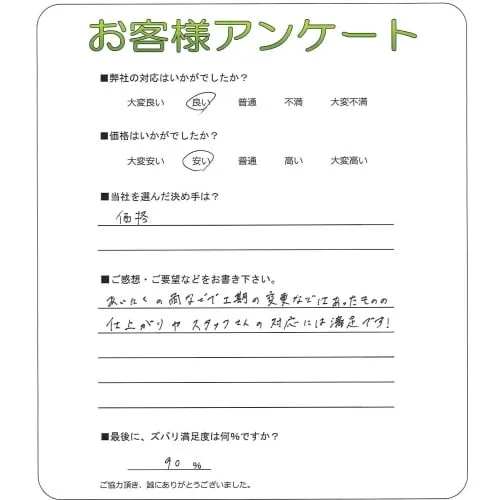 お客様アンケート
■弊社の対応はいかがでしたか?
大変良い 良い 普通 不満 大変不満
■価格はいかがでしたか?
大変安い 安い 普通 高い 大変高い
■当社を選んだ決め手は?
価格
■ご感想・ご要望などをお書き下さい。
あいにくの雨などで工期の変更などはあったものの
仕上がりやスタッフさんの対応には満足です!
■最後に、ズバリ満足度は何%ですか?
90 %
ご協力頂き、誠にありがとうございました。